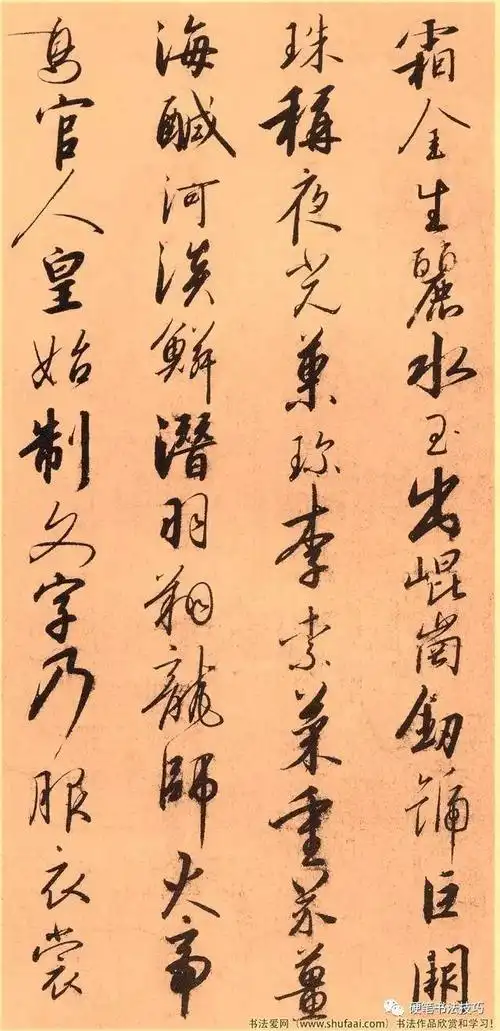 霜金生麗水玉出崐崗釼號巨闕
珠稱夜光菓珍李柰菜重芥薑
海醎河淡鱗潛羽翔龍師火帝
鳥官人皇始制文字乃服衣裳
硬笔书法技巧
书法爱网（www.shufaai.com）书法作品欣赏和学习！